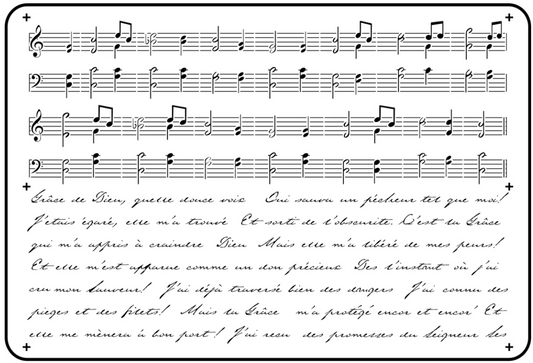 Grâce de Dieu, quelle douce voix Qui sauva un pécheur tel que moi!
J'étais égaré, elle m'a trouvé Et sorti de l'obscurité. C'est ta Grâce
qui m'a appris à craindre Dieu Mais elle m'a libéré de mes peurs!
Et elle m'est apparue comme un don précieux Dès l'instant où j'ai
cru mon Sauveur! J'ai déjà traversé bien des dangers J'ai connu des
pièges et des filets! Mais ta Grâce m'a protégé encor et encor' Et
elle me mènera à bon port! J'ai reçu des promesses du Seigneur Ses